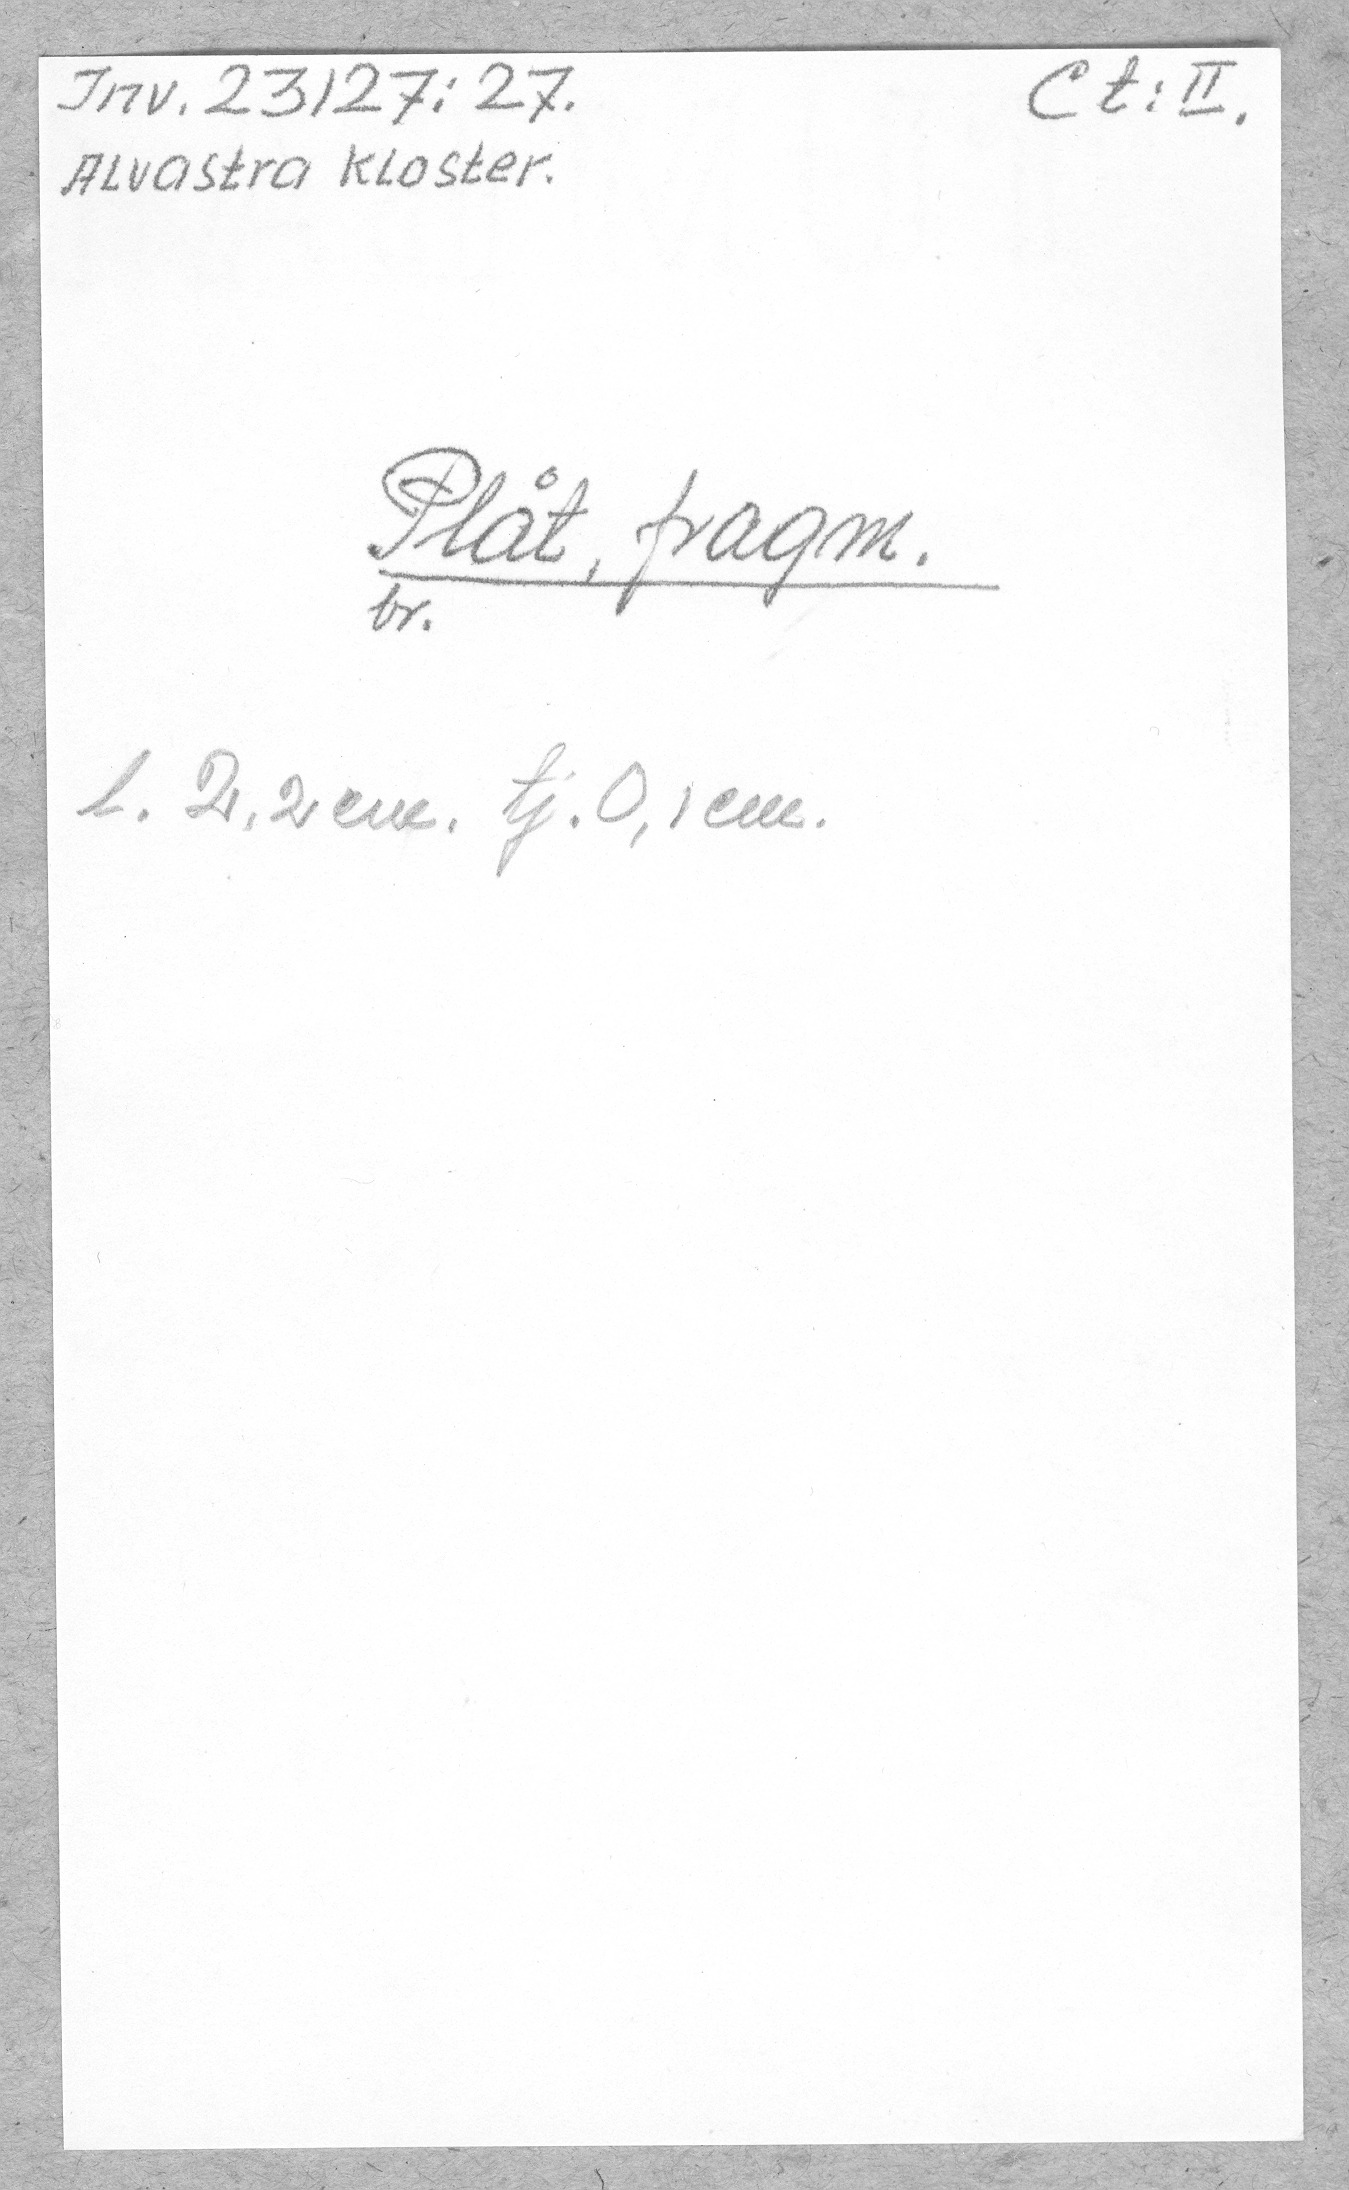 Inv. 23127:27.
Ct: II.
Alvastra kloster.
Plåt, fragm.
br.
l. 2,2 cm. tj. 0,1 cm.